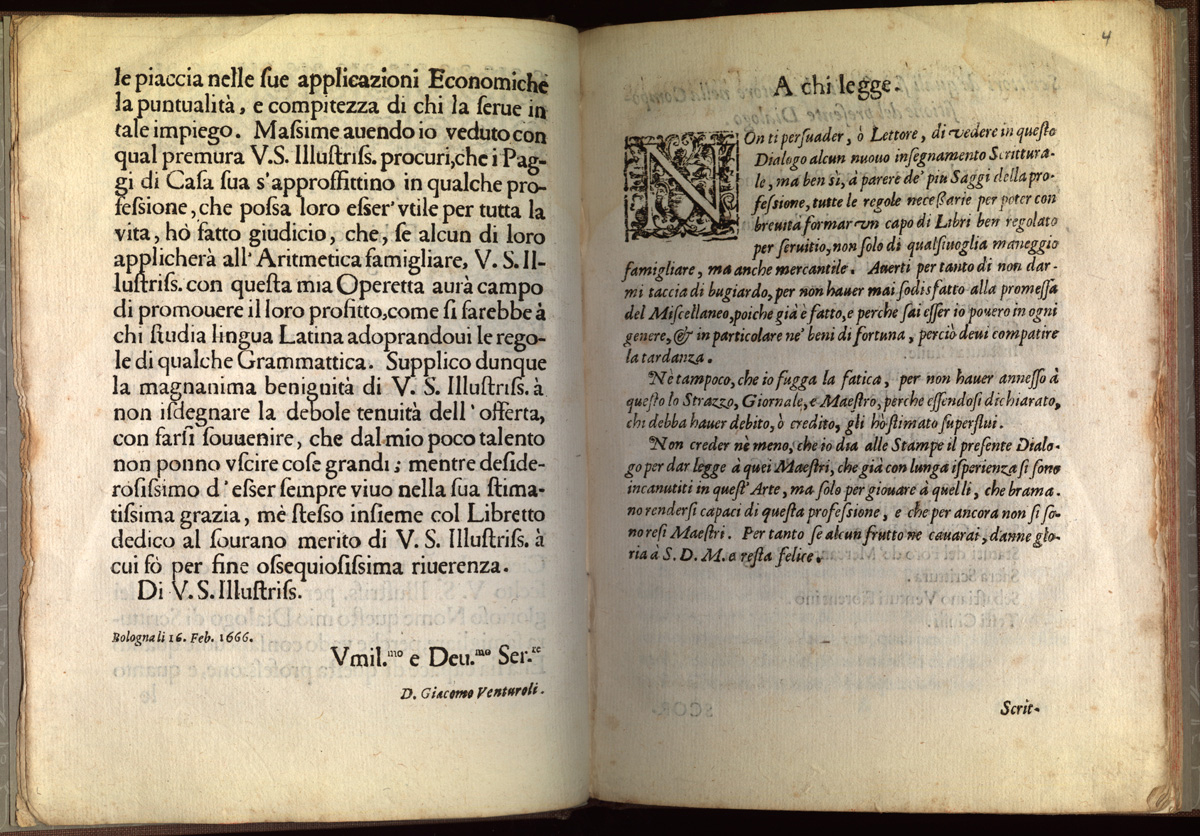 le piaccia nelle ſue applicazioni Economiche
la puntualità, e compitezza di chi la ſerue in
tale impiego. Maſſime auendo io veduto con
qual premura V.S. Illuſtriſs. procuri, che i Pag-
gi di Caſa ſua s'approffittino in qualche pro-
feſſione, che poſſa loro eſſer' vtile per tutta la
vita, hò fatto giudicio, che, ſe alcun di loro
applicherà all'Aritmetica famigliare, V. S. Il-
luſtriſs. con queſta mia Operetta aurà campo
di promouere il loro profitto, come ſi farebbe à
chi ſtudia lingua Latina adoprandoui le rego-
le di qualche Grammattica. Supplico dunque
la magnanima benignità di V. S. Illuſtriſs. à
non iſdegnare la debole tenuità dell' offerta,
con farſi ſouuenire, che dal mio poco talento
non ponno vſcire coſe grandi; mentre deſide-
roſiſſimo d'eſſer ſempre viuo nella ſua ſtima-
tiſſima grazia, mè ſteſſo inſieme col Libretto
dedico al ſourano merito di V. S. Illuſtriſs. à
cui fò per fine oſſequioſiſſima riuerenza.
Di V. S. Illuſtriſs.
Bologna li 16. Feb. 1666.
Vmil.mo e Deu.mo Ser.re
D. Giacomo Venturoli.
4
A chi legge.
NOn ti perſuader, ò Lettore, di vedere in queſto
Dialogo alcun nuouo inſegnamento Scrittura-
le, ma ben sì, à parere de' piu Saggi della pro-
feſſione, tutte le regole neceßarie per poter con
breuità formar vn capo di Libri ben regolato
per ſeruitio, non ſolo di qualſiuoglia maneggio
famigliare, ma anche mercantile. Auerti per tanto di non dar-
mi taccia di bugiardo, per non hauer mai ſodisfatto alla promeſſa
del Miſcellaneo, poiche già è fatto, e perche ſai eſſer io pouero in ogni
genere, & in particolare ne' beni di fortuna, perciò deui compatire
la tardanza.
Nè tampoco, che io fugga la fatica, per non hauer anneſſo à
queſto lo Strazzo, Giornale, e Maeſtro, perche eſſendoſi dichiarato,
chi debba hauer debito, ò credito, gli hò ſtimato ſuperflui.
Non creder nè meno, che io dia alle Stampe il preſente Dialo-
go per dar legge à quei Maeſtri, che già con lunga iſperienza ſi ſono
incanutiti in queſt' Arte, ma ſolo per giouare à quelli, che brama-
no renderſi capaci di queſta profeſſione, e che per ancora non ſi ſo-
no reſi Maeſtri. Per tanto ſe alcun frutto ne cauarai, d'anne glo-
ria à S. D. M. e reſta felice.
Scrit-